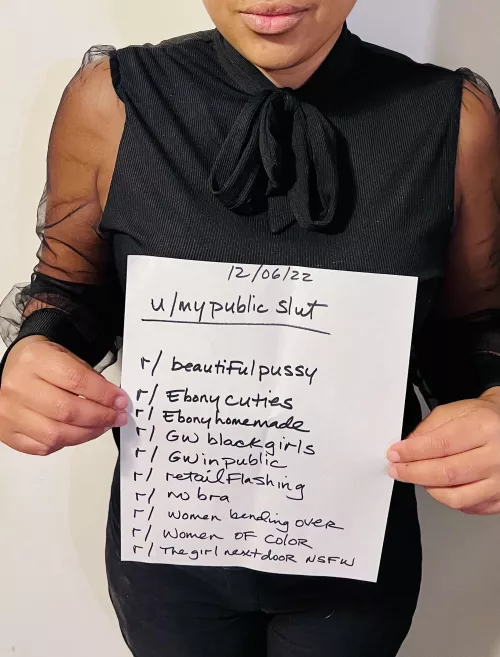 12/06/22
u/mypublic slut
r/ beautifulpussy
r/ Ebony cuties
r/ Ebonyhomemade
r/ GW blackgirls
r/ GWinpublic
r/ retailFlashing
r/ no bra
r/ women bending over
r/ women OF COLOR
r/ The girl nextdoor NSFW